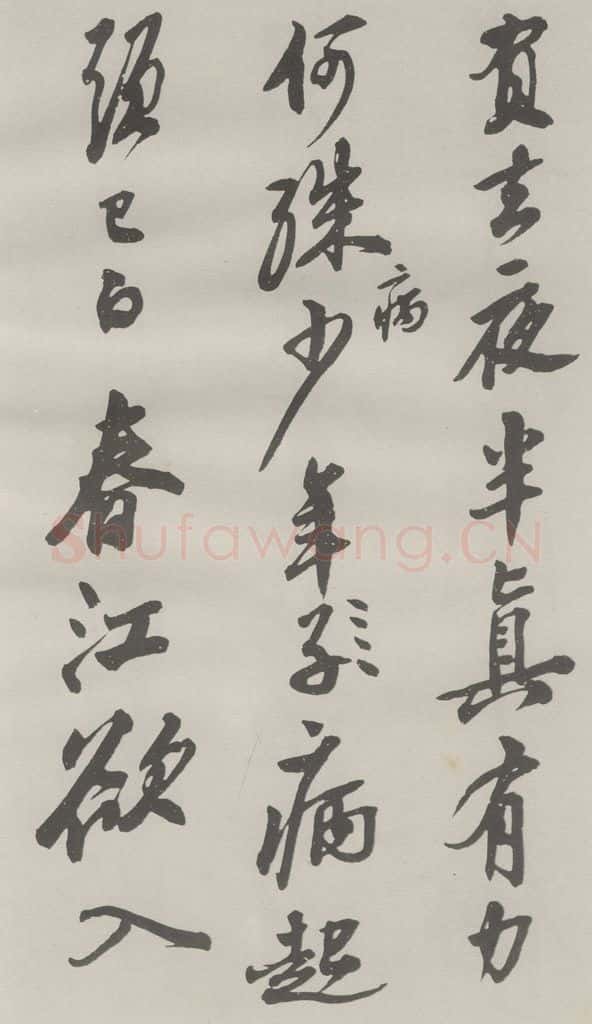 負去夜半眞有力
何殊病少年子病起
頭已白春江欲入
Shufawang.CN